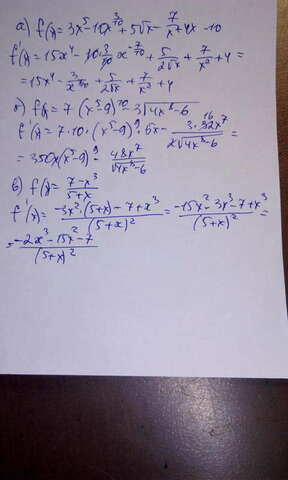 а) f(x) = 3x⁵ - 10x^(3/10) + 5√x - 7/x + 4x - 10
f'(x) = 15x⁴ - 10·3/10 x^(-7/10) + 5/(2√x) + 7/x² + 4 =
= 15x⁴ - 3/x^(7/10) + 5/(2√x) + 7/x² + 4
б) f(x) = 7(x⁵-9)¹⁰ - 3√(4x⁸-6)
f'(x) = 7·10·(x⁵-9)⁹·5x - 3·32x⁷/(2√(4x⁸-6)) =
= 350x(x⁵-9)⁹ - 48x⁷/√(4x⁸-6)
в) f(x) = (7-x³)/(5+x)
f'(x) = (-3x²·(5+x) - 7+x³)/(5+x)² = (-15x² - 3x³ - 7+x³)/(5+x)² =
= (-2x³ - 15x² - 7)/(5+x)²